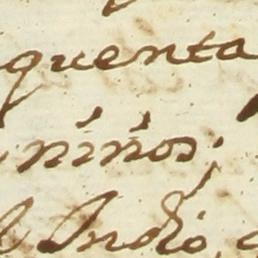 quenta
niños;
el Indio,